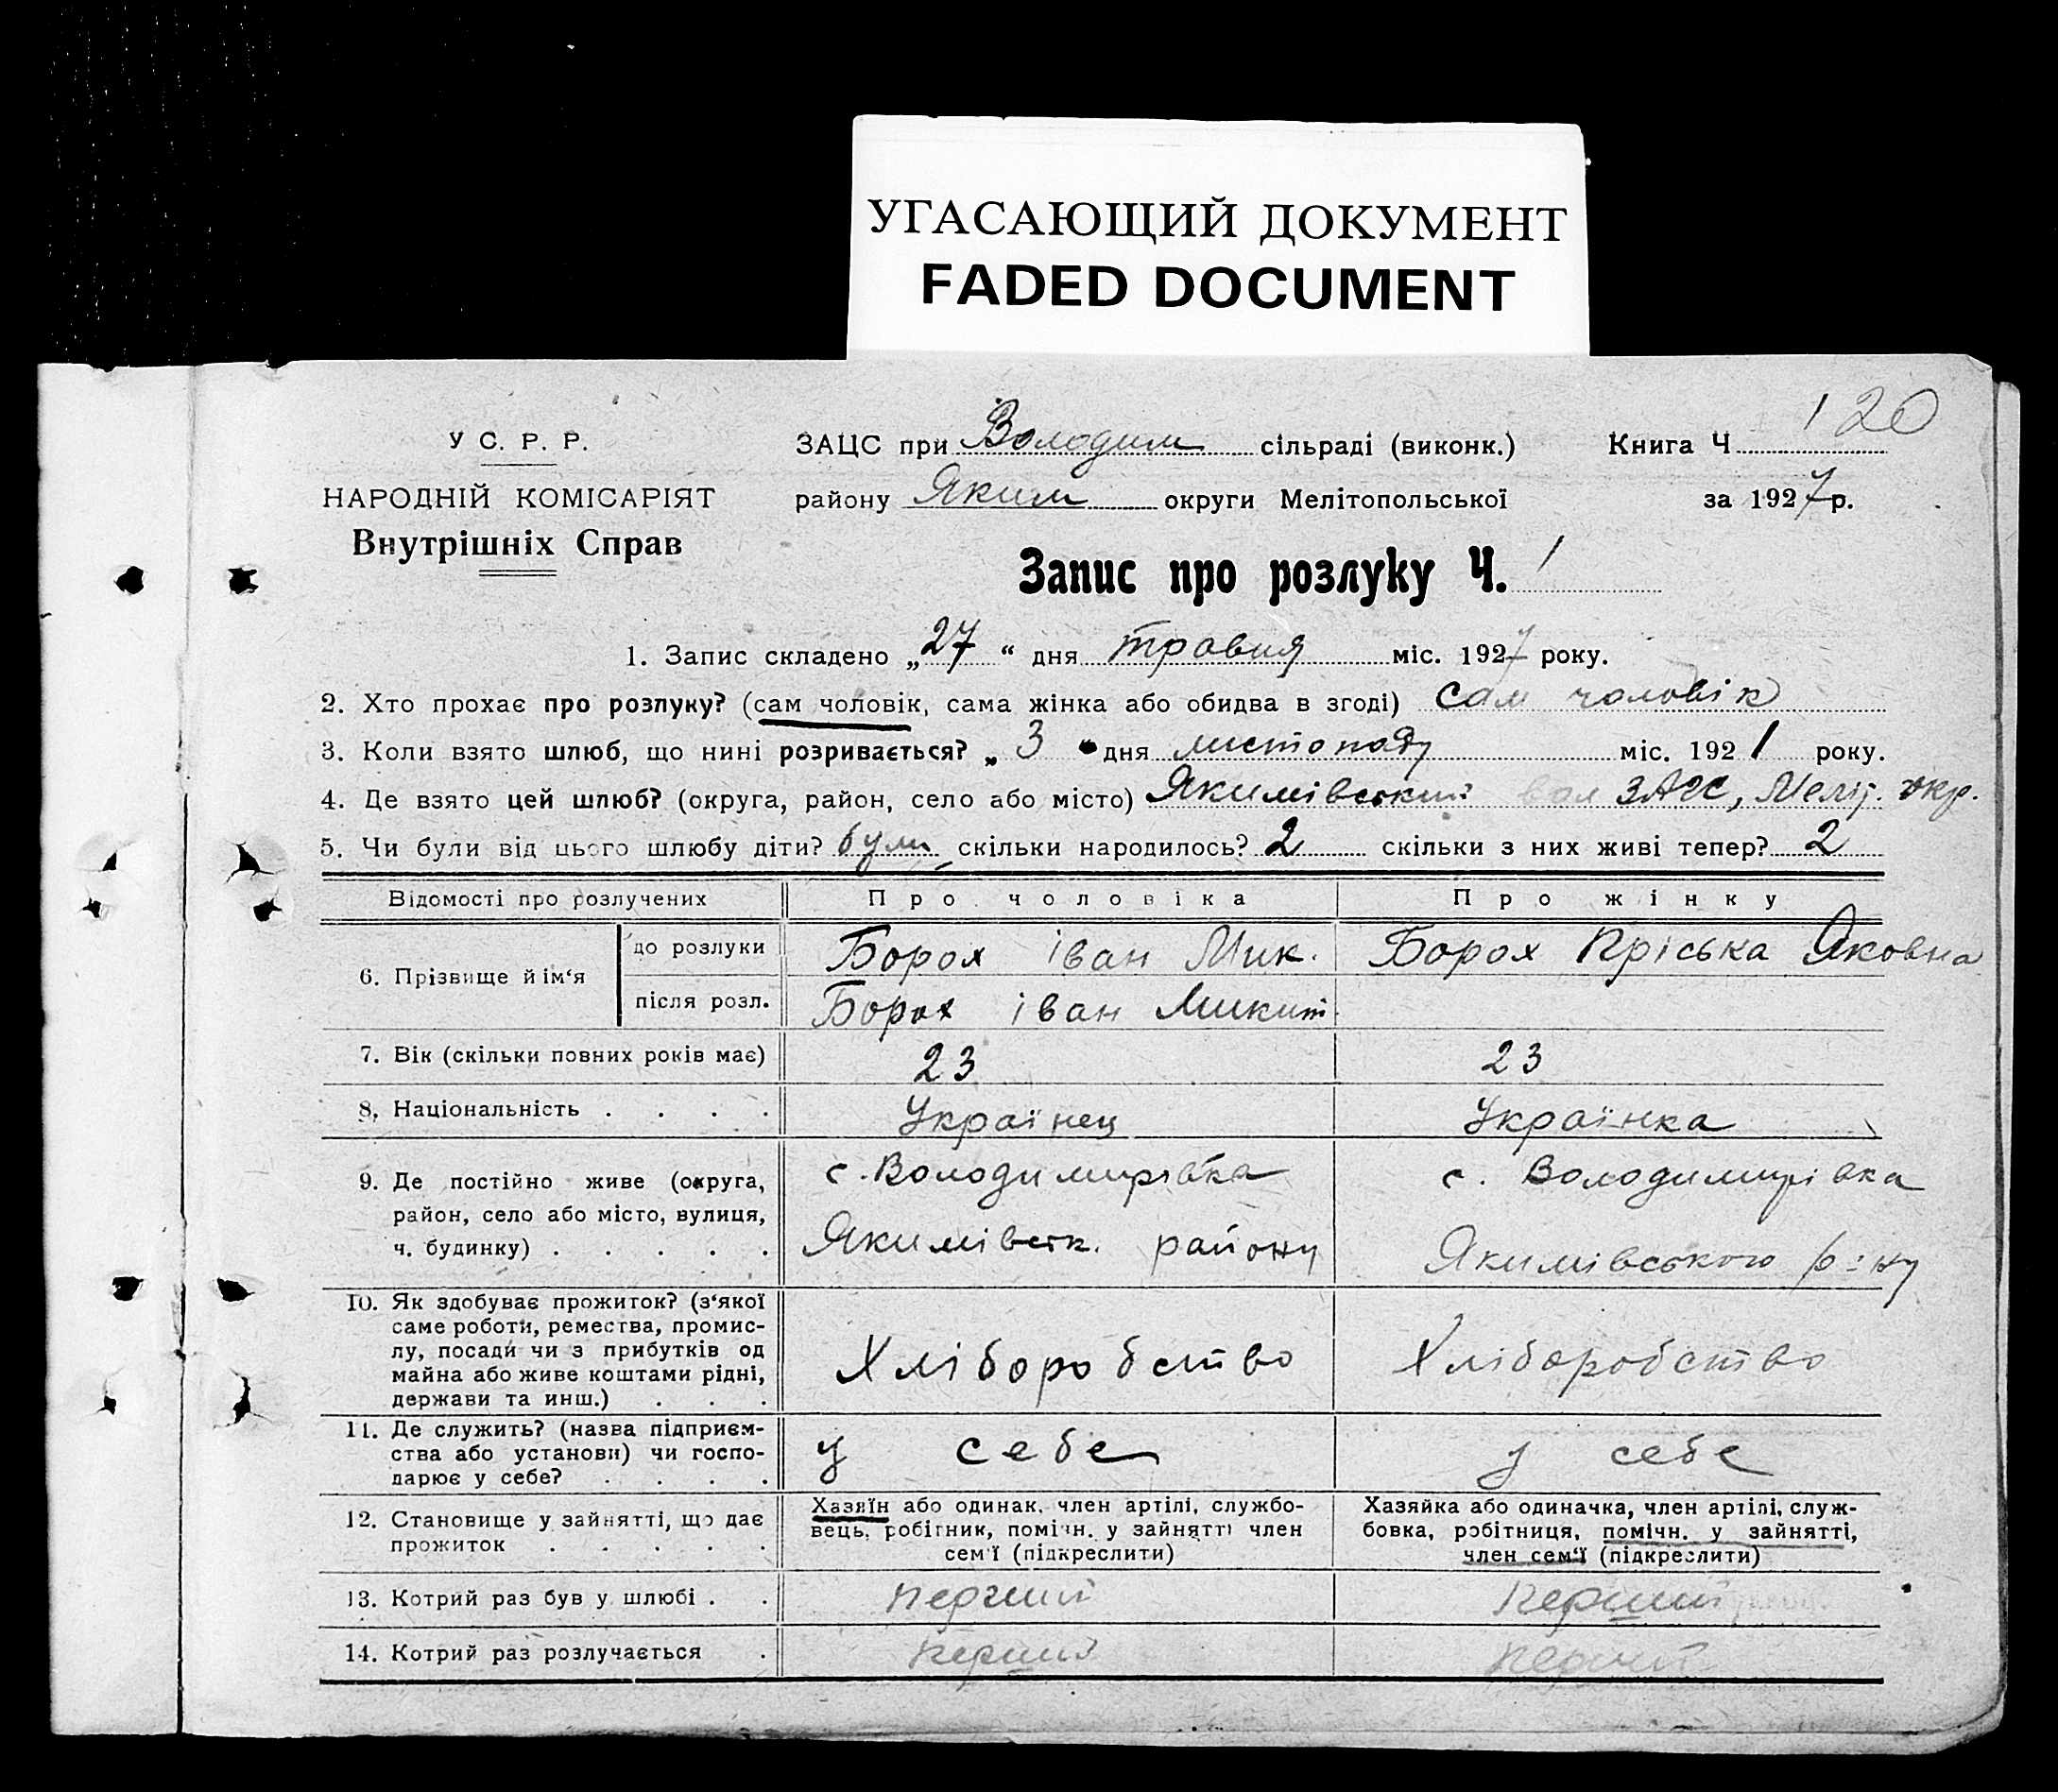 УГАСАЮЩИЙ ДОКУМЕНТ
FADED DOCUMENT
120
У С. Р. Р.
ЗАЦС при Володим сільраді (виконк.)
Книга Ч
НАРОДНІЙ КОМІСАРІЯТ
району Яким округи Мелітопольської
за 1927 р.
Внутрішніх Справ
Запис про розлуку Ч. 1
1. Запис складено „27“ дня травня міс. 1927 року.
2. Хто прохає про розлуку? (сам чоловік, сама жінка або обидва в згоді) сам чоловік
3. Коли взято шлюб, що нині розривається? „3“ дня листопаду міс. 1921 року.
4. Де взято цей шлюб? (округа, район, село або місто) Якимівський вол ЗАГС, Меліт. окр.
5. Чи були від цього шлюбу діти? були скільки народилось? 2 скільки з них живі тепер? 2
Відомості про розлучених
Про чоловіка
Про жінку
6. Прізвище й ім‘я
до розлуки
Борох іван Мик.
Борох Пріська Яковна
після розл.
Борох іван Микит.
7. Вік (скільки повних років має)
23
23
8. Національність . . . .
Українец
Українка
9. Де постійно живе (округа,
район, село або місто, вулиця,
ч. будинку) . . . . .
с. Володимирівка
Якимівськ. району
с. Володимирівка
Якимівського р-ну
10. Як здобуває прожиток? (з‘якої
саме роботи, ремества, промис-
лу, посади чи з прибутків од
майна або живе коштами рідні,
держави та инш.) . . .
Хліборобство
Хліборобство
11. Де служить? (назва підприєм-
ства або установи) чи госпо-
дарює у себе? . . . .
у себе
у себе
12. Становище у зайнятті, що дає
прожиток . . . . .
Хазяїн або одинак, член артілі, службо-
вець, робітник, помічн. у зайнятті член
сем‘ї (підкреслити)
Хазяйка або одиначка, член артілі, служ-
бовка, робітниця, помічн. у зайнятті,
член сем‘ї (підкреслити)
13. Котрий раз був у шлюбі . .
перший
перший
14. Котрий раз розлучається .
перший
перший